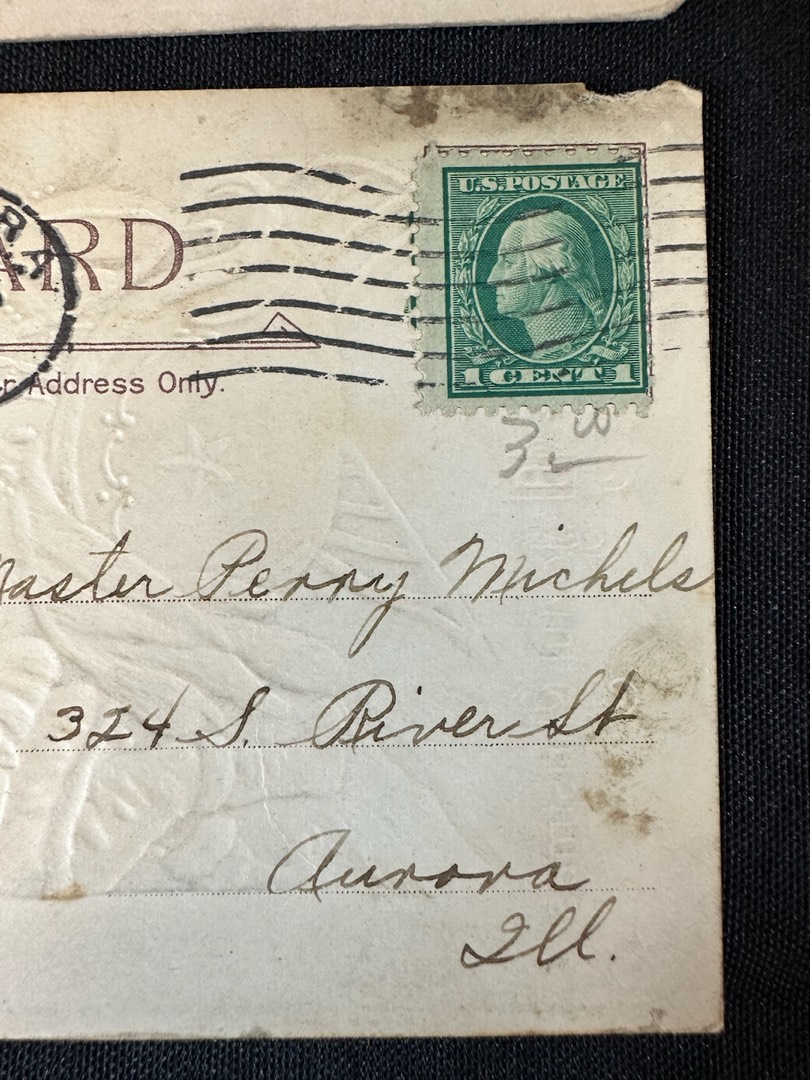 RA
ARD
U.S. POSTAGE
1 CENT 1
r Address Only.
3.00
Master Perry Michels
324 S. River St
Aurora
Ill.